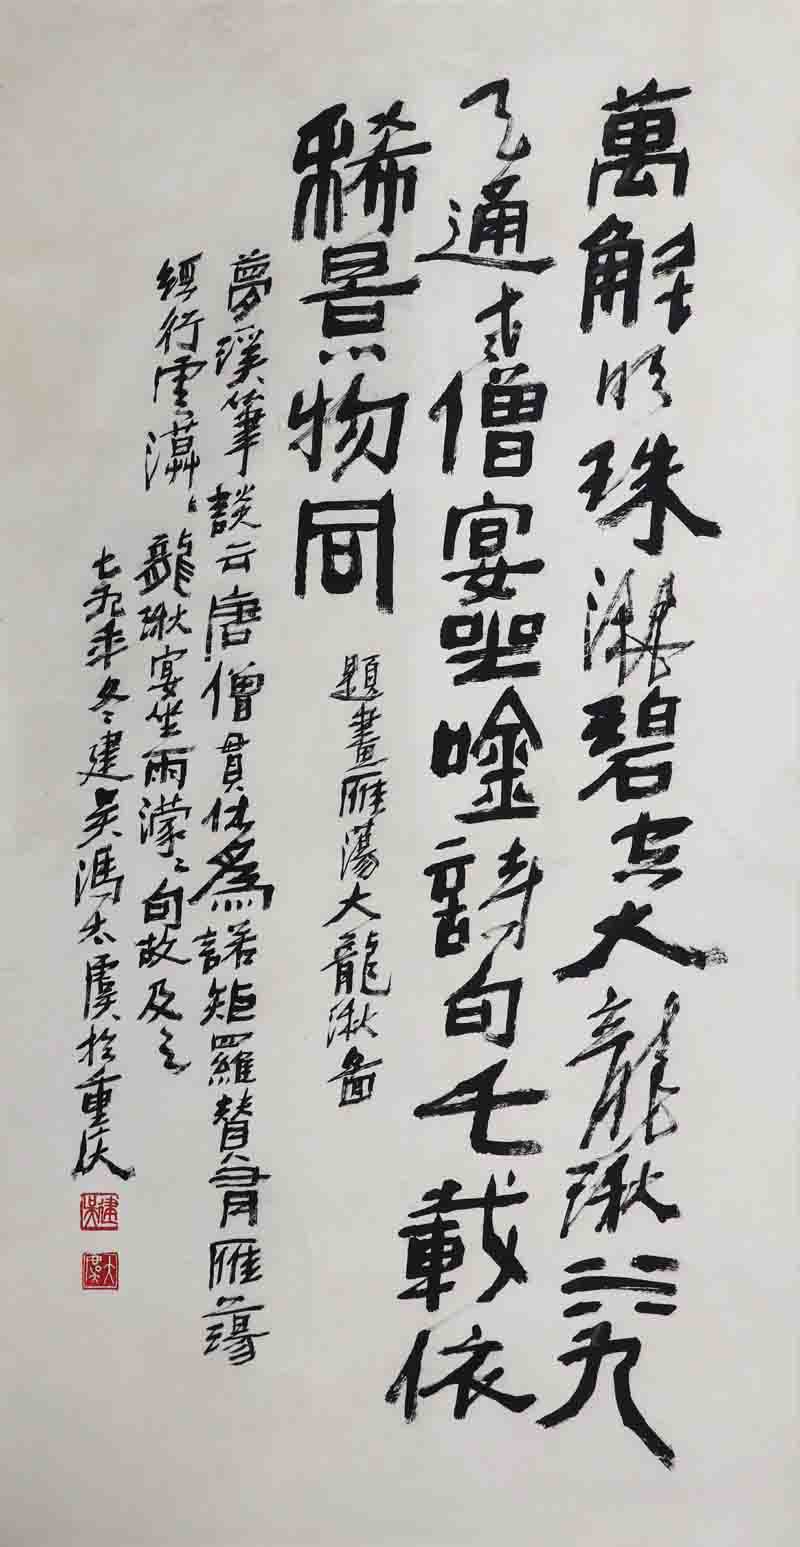 萬斛明珠濺碧空大龍湫九
天通僧宴坐唫詩句千載依
稀景物同
題畫雁蕩大龍湫圖
夢溪筆談云唐僧貫休為諾矩羅贊有雁蕩
經行雲龍湫宴坐雨濛〻句故及之
七九年冬建吳馮太虞於重庆
建吳